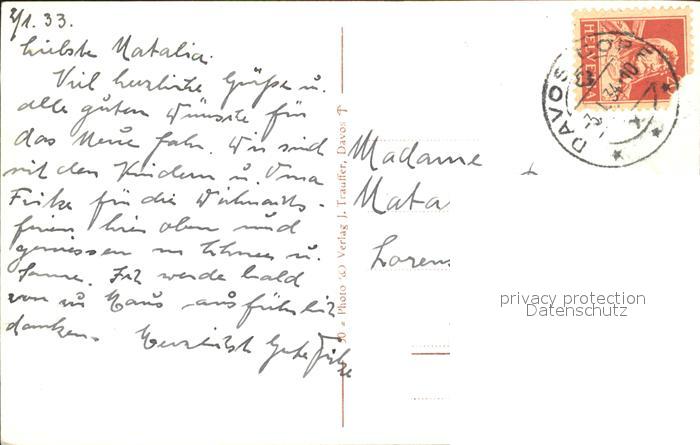 2/1. 33.
Liebste Natalia.
Viel herzliche Grüße u.
alle guten Wünsche für
das Neue Jahr. Wir sind
mit den Kindern u. Oma
Fritze für die Weihnachts-
ferien hier oben und
geniessen Schnee u.
Sonne. Ich werde bald
von zu Haus ausführlich
danken. Herzlichst
50 Photo & Verlag J. Trauffer, Davos
Madame
Nata
Loren
HELVETIA
DAVOS DORF
privacy protection
Datenschutz